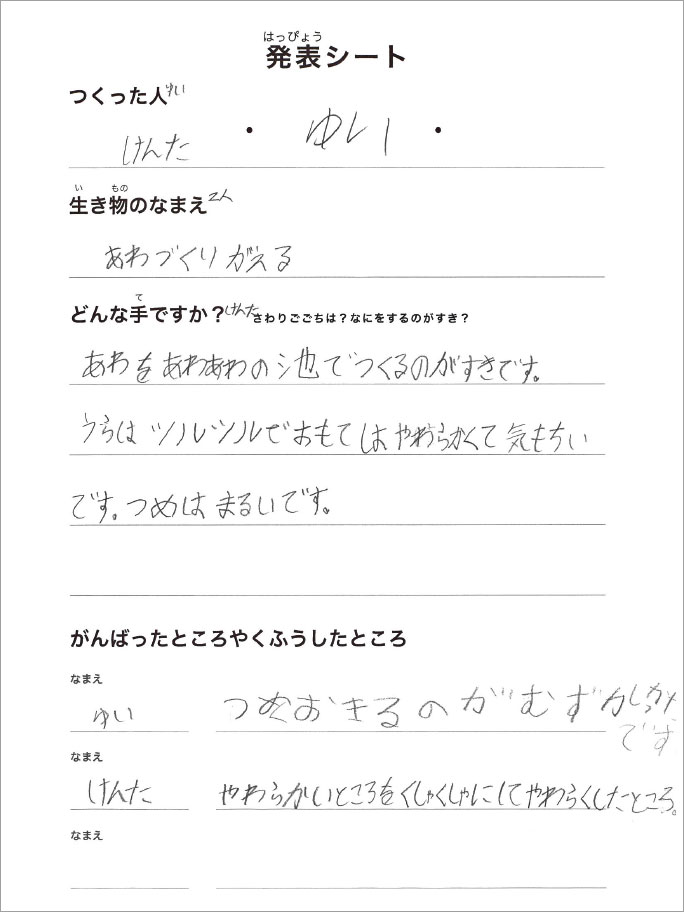 はっぴょう
発表シート
つくった人 ゆい
けんた ・ ゆい ・
い もの
生き物のなまえ 2人
あわづくりがえる
て
どんな手ですか？けんた さわりごごちは？なにをするのがすき？
あわをあわあわの池でつくるのがすきです。
うらはツルツルでおもてはやわらかくて気もちい
です。つめはまるいです。
がんばったところやくふうしたところ
なまえ
ゆい つめおきるのがむずかしかた
です
なまえ
けんた やわらかいところをくしゃくしゃにしてやわらくしたところ。
なまえ